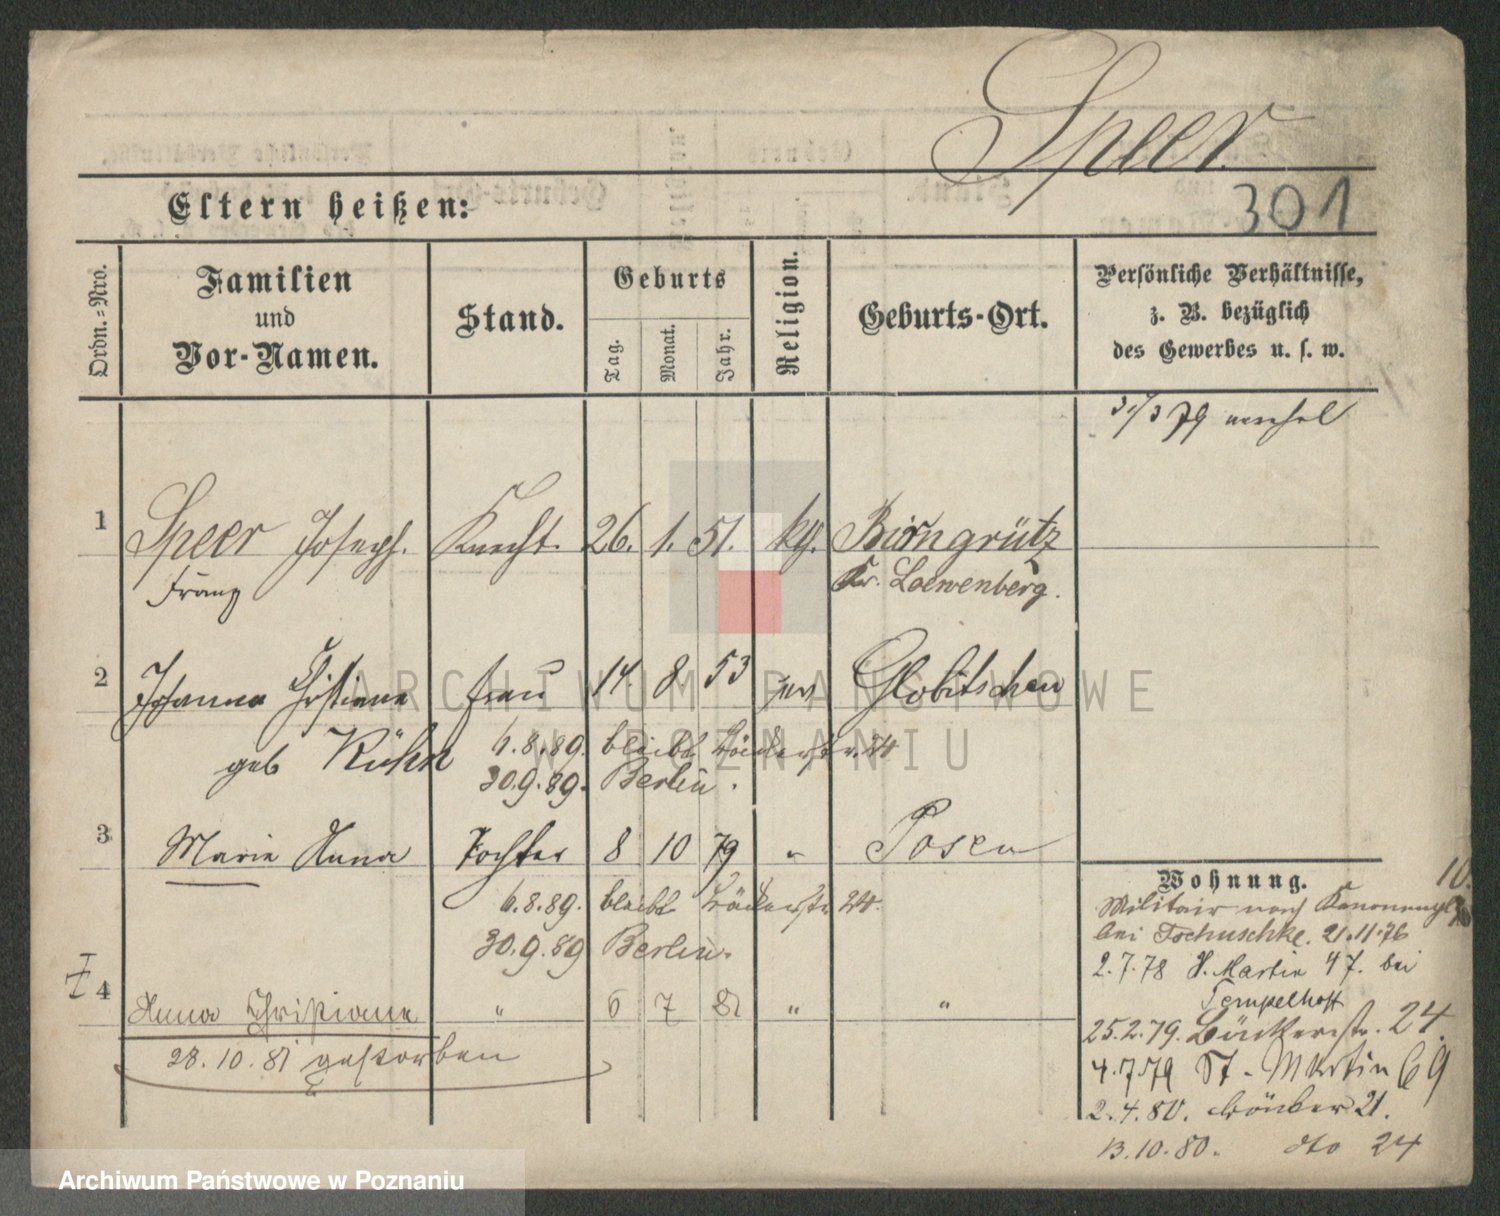 Speer
301
Eltern heißen:
Ordn.-Nro.
Familien
und
Vor-Namen.
Stand.
Geburts
Tag.
Monat.
Jahr.
Religion.
Geburts-Ort.
Persönliche Verhältnisse,
z. B. bezüglich
des Gewerbes u. s. w.
31/3 79
1 Speer Joseph. Knecht. 26. 1. 51. kg. Birngrütz
Franz Kr. Loewenberg.
2 Johanna Christiane Frau 14. 8 53 ev Globitschen
geb Kühn 6.8.89. bleibt Bäckerstr. 24
30.9.89. Berlin.
3 Marie Anna Tochter 8 10 79 " Posen
6.8.89. bleibt Bäckerstr 24.
30.9.89 Berlin.
4 Anna Christiane " 6 7 81 " "
28.10.81 gestorben
Wohnung.
10.
Militair nach Kanonenpl
bei Tschuschke. 21.11.76
2.7.78 St. Martin 47. bei
Tempelhoff
25.2.79. Bäckerstr. 24.
4.7.79 St. Martin 69
2.4.80. 21.
13.10.80. dto 24
ARCHIWUM PAŃSTWOWE
W POZNANIU
Archiwum Państwowe w Poznaniu